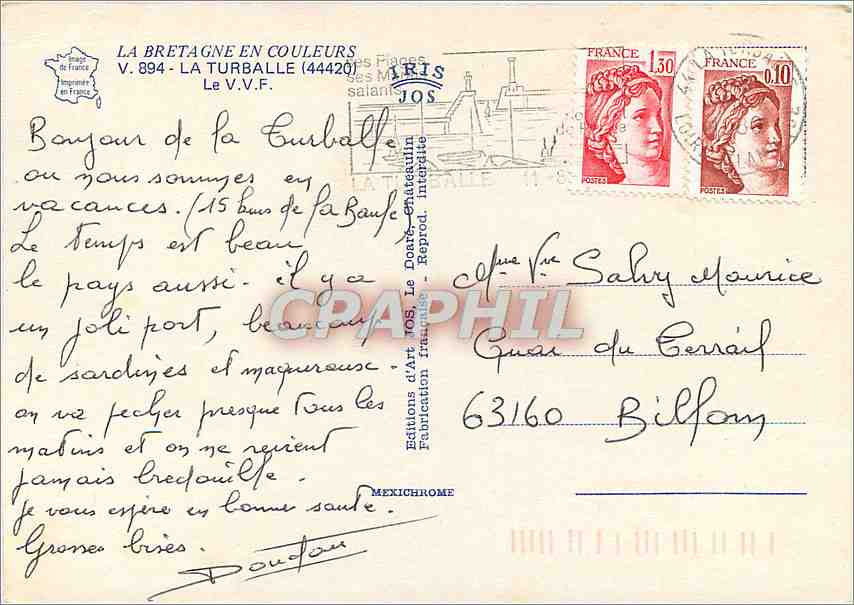 Image
de France
Imprimée
en France
LA BRETAGNE EN COULEURS
V. 894 - LA TURBALLE (44420)
Le V.V.F.
ses Plages
salants
LA TURBALLE 11-8
IRIS
JOS
FRANCE
1,30
POSTES
FRANCE
0,10
POSTES
Bonjour de la Turballe
ou nous sommes en
vacances. (15 kms de la Baule)
Le temps est beau,
le pays aussi - il y a
un joli port, beaucoup
de sardines et maquereaux -
on va pecher presque tous les
matins et on ne revient
jamais bredouille.
Je vous espère en bonne santé.
Grosses bises.
Doudou
Editions d'Art JOS, Le Doaré, Châteaulin
Fabrication française - Reprod. interdite
MEXICHROME
Mme Vve Salvy Maurice
Quai du Terrail
63160 Billom
CPARHIL